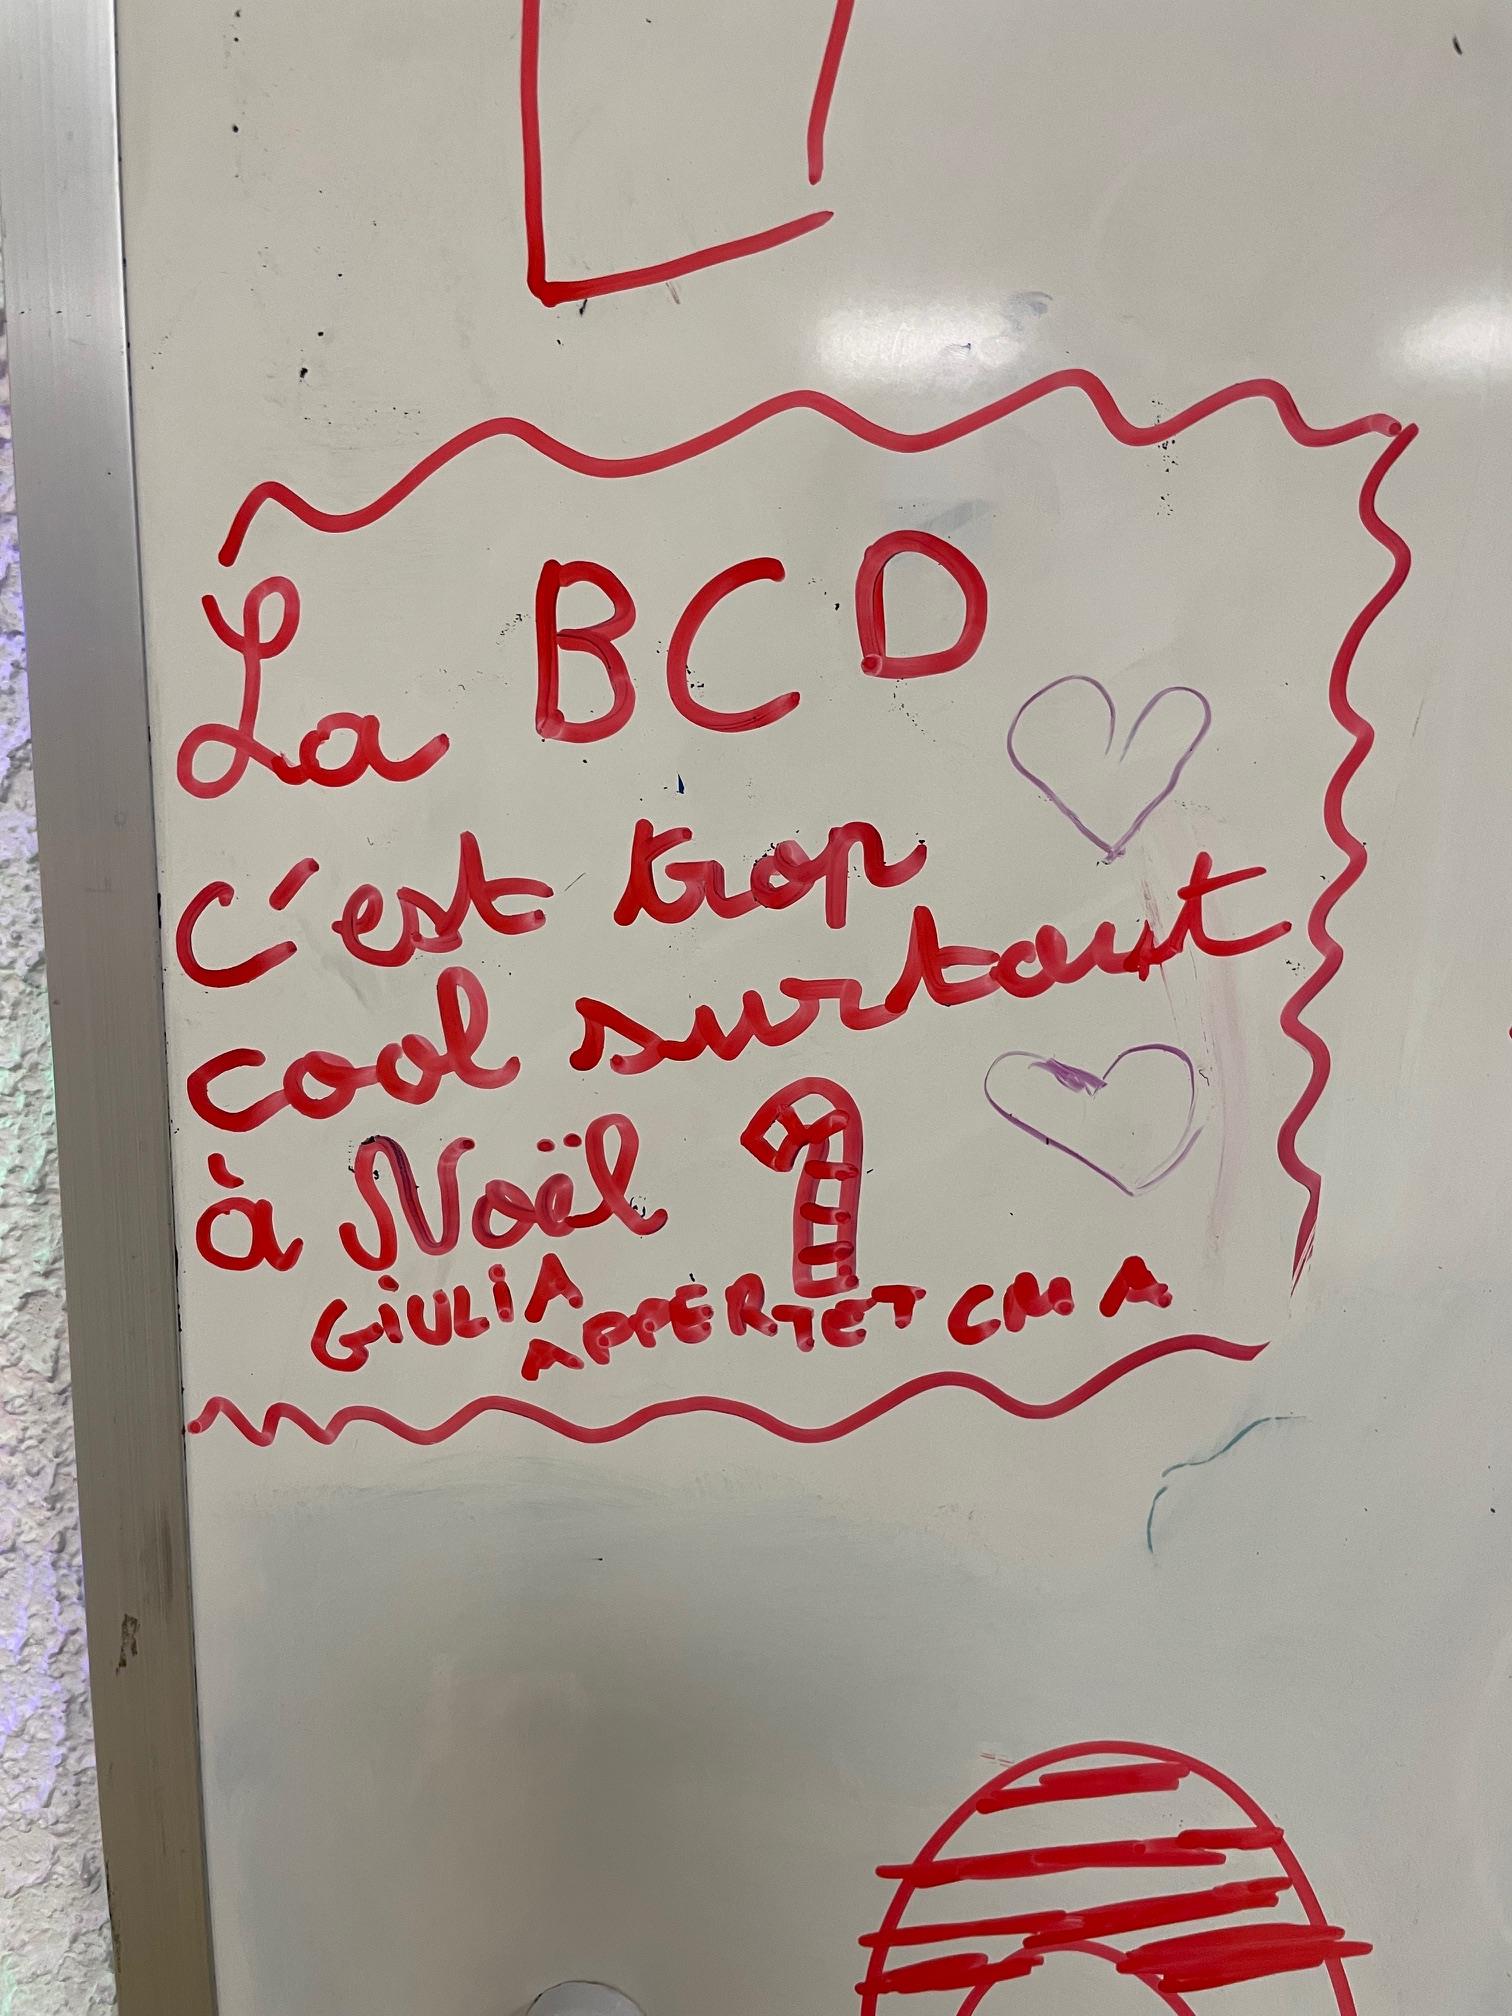 La BCD
c'est trop
cool surtout
à Noël
GiULiA
APPERTET CM A